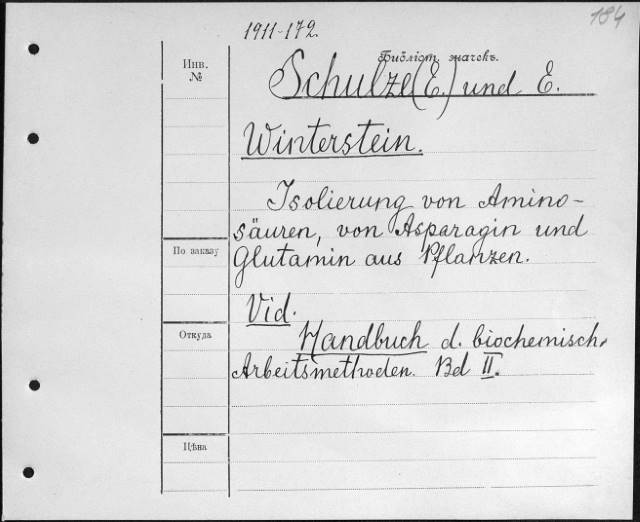 184
1911-172.
Инв.
№
Библіот. значекъ.
Schulze (E.) und E.
Winterstein.
Isolierung von Amino-
säuren, von Asparagin und
Glutamin aus Pflanzen.
По заказу
Vid.
Откуда
Handbuch d. biochemisch.
Arbeitsmethoden. Bd II.
Цѣна